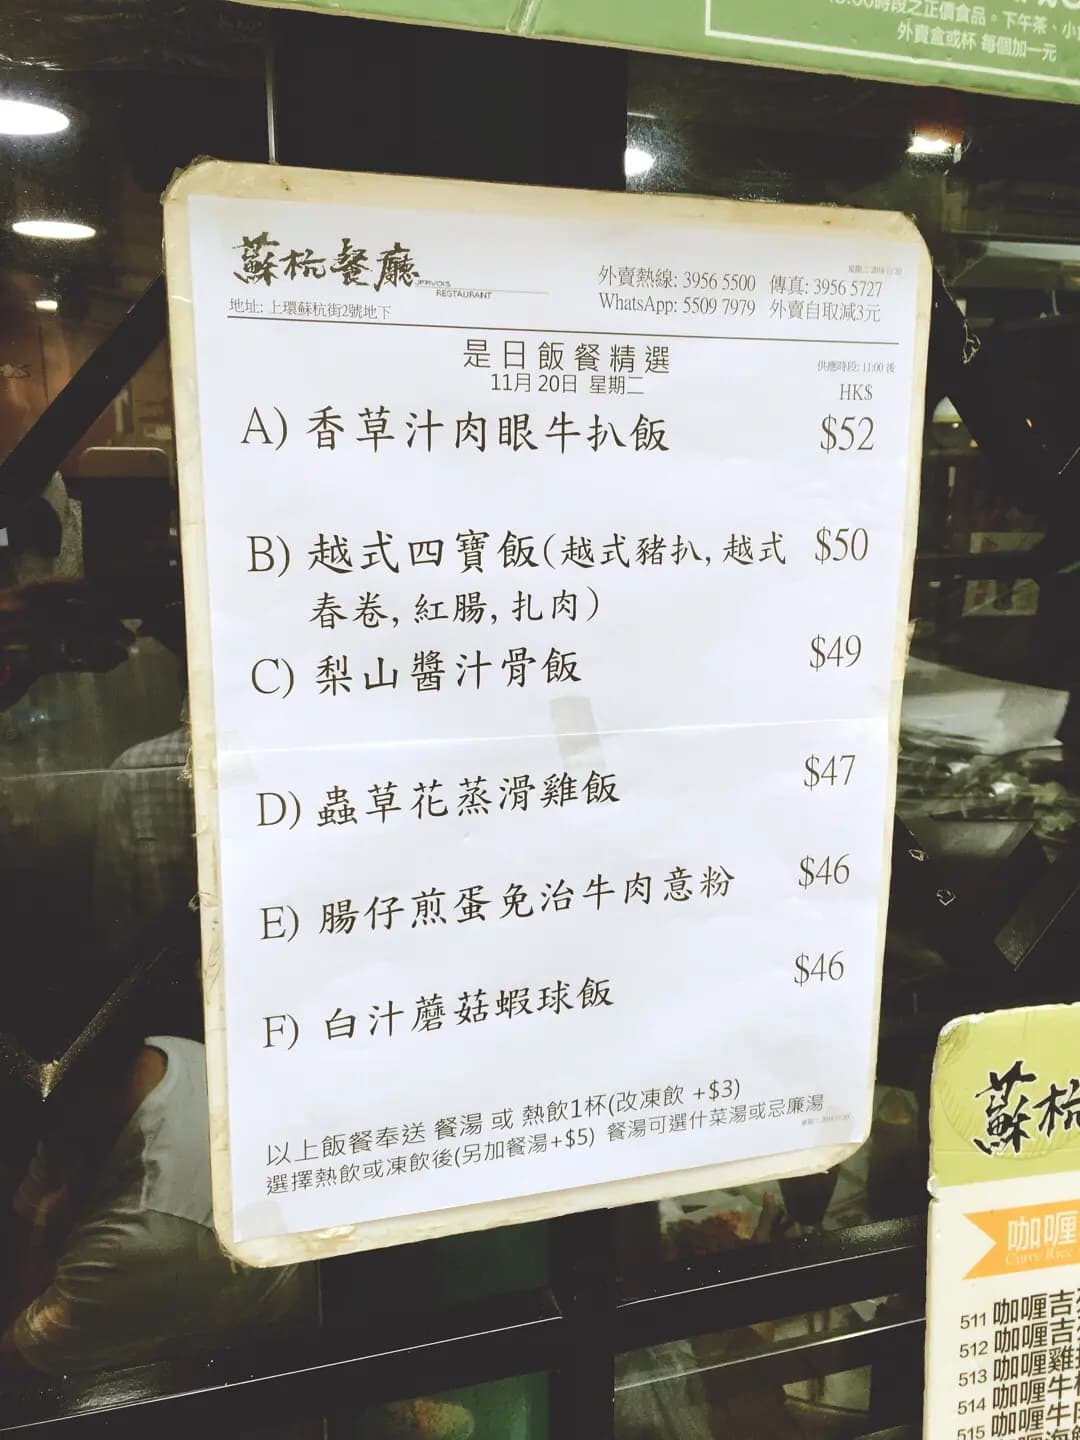 時段之正價食品。下午茶、小
外賣盒或杯 每個加一元
蘇杭餐廳
JERVOIS
RESTAURANT
地址: 上環蘇杭街2號地下
外賣熱線: 3956 5500 傳真: 3956 5727
WhatsApp: 5509 7979 外賣自取減3元
是日飯餐精選
11月 20日 星期二
供應時段: 11:00 後
HK$
A) 香草汁肉眼牛扒飯 $52
B) 越式四寶飯(越式豬扒, 越式 $50
春卷, 紅腸, 扎肉)
C) 梨山醬汁骨飯 $49
D) 蟲草花蒸滑雞飯 $47
E) 腸仔煎蛋免治牛肉意粉 $46
F) 白汁蘑菇蝦球飯 $46
以上飯餐奉送 餐湯 或 熱飲1杯(改凍飲 +$3)
選擇熱飲或凍飲後(另加餐湯+$5) 餐湯可選什菜湯或忌廉湯
蘇杭
咖喱
Curry Rice
511 咖喱吉
512 咖喱吉
513 咖喱雞
514 咖喱牛
515 咖喱牛
咖喱海